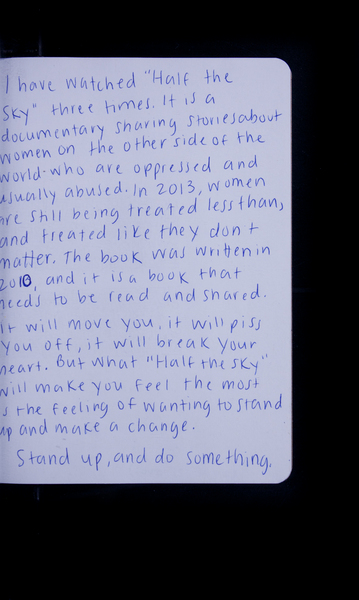 I have watched "Half the
Sky" three times. It is a
documentary sharing stories about
women on the other side of the
world who are oppressed and
usually abused. In 2013, women
are still being treated less than,
and treated like they don't
matter. The book was written in
2010, and it is a book that
needs to be read and shared.
It will move you, it will piss
you off, it will break your
heart. But what "Half the Sky"
will make you feel the most
is the feeling of wanting to stand
up and make a change.
Stand up, and do something.